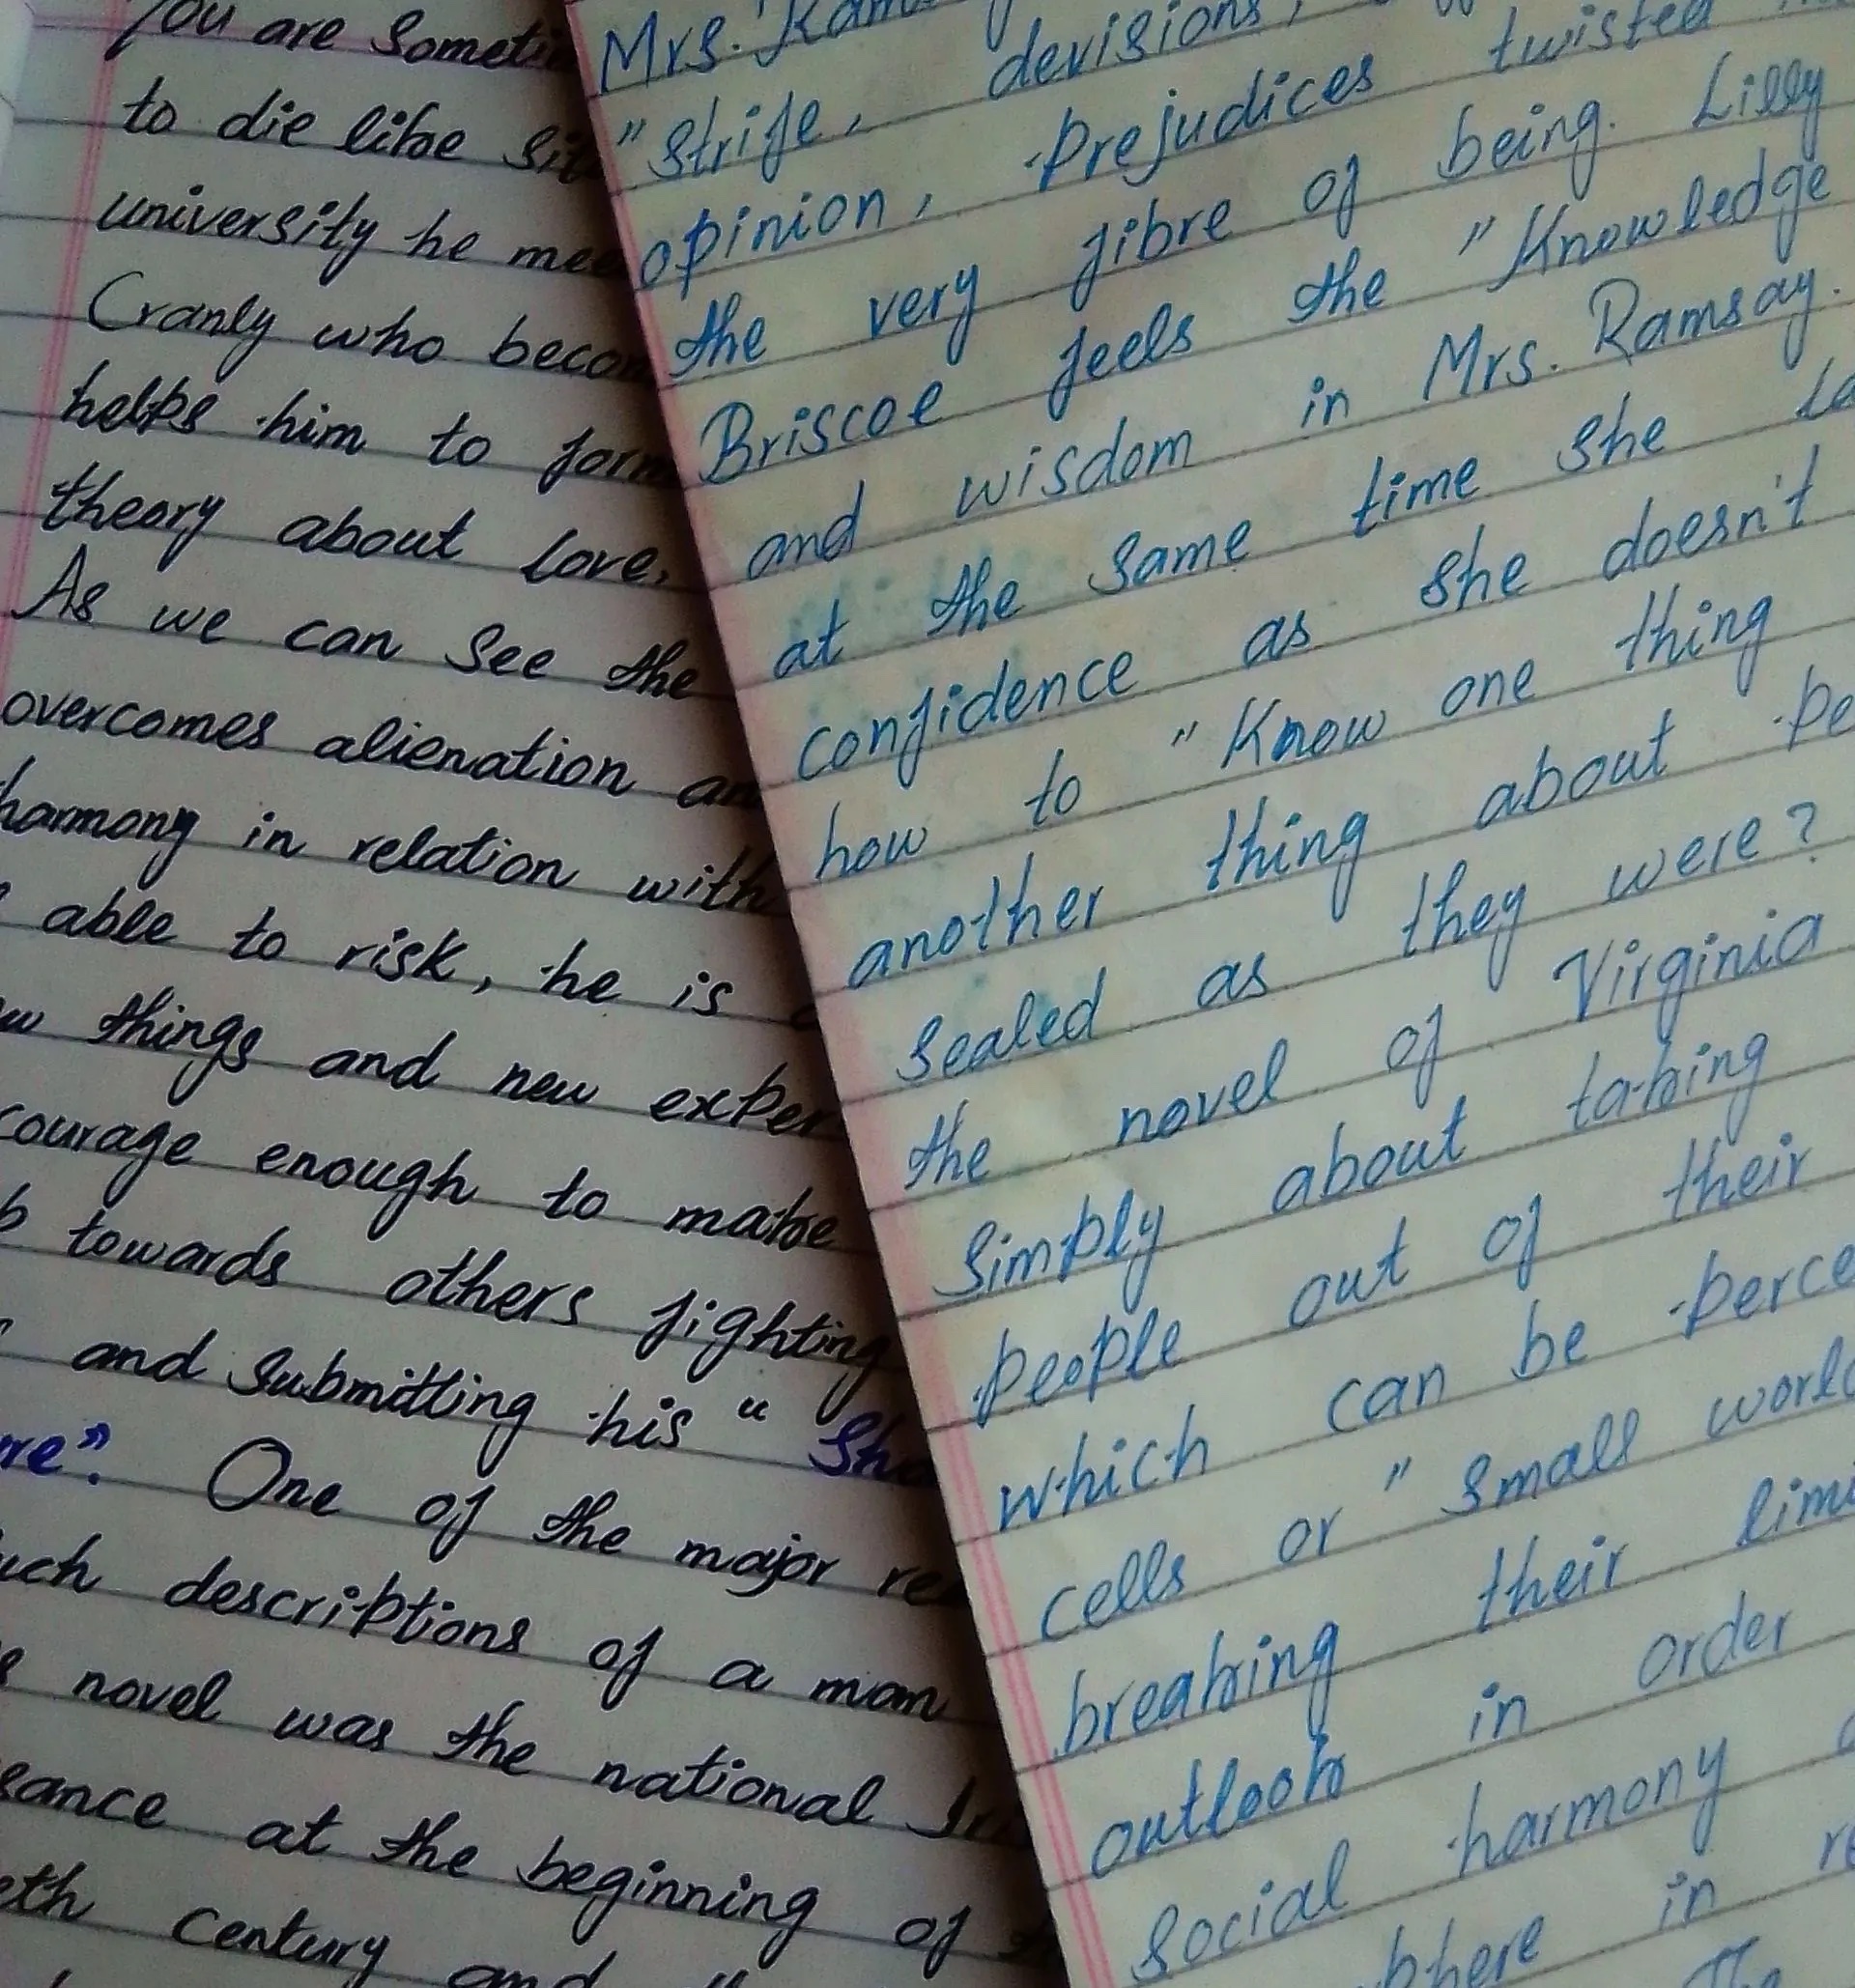 You are
to die like
university he
Cranly who
helps him to
theory about love,
As we can see the
overcomes alienation
harmony in relation with
able to risk, he is
things and new
courage enough to make
towards others fighting
and submitting his "
One of the major
descriptions of a man
novel was the national
at the beginning of
century and
Mrs.
"strife, devisions,
opinion, prejudices twisted
the very fibre of being. Lilly
Briscoe feels the "Knowledge
and wisdom in Mrs. Ramsay.
at the same time she
confidence as she doesn't
how to "Know one thing
another thing about
sealed as they were?
the novel of Virginia
simply about taking
people out of their
which can be
cells or "small
breaking their
outlook in order
social harmony
in